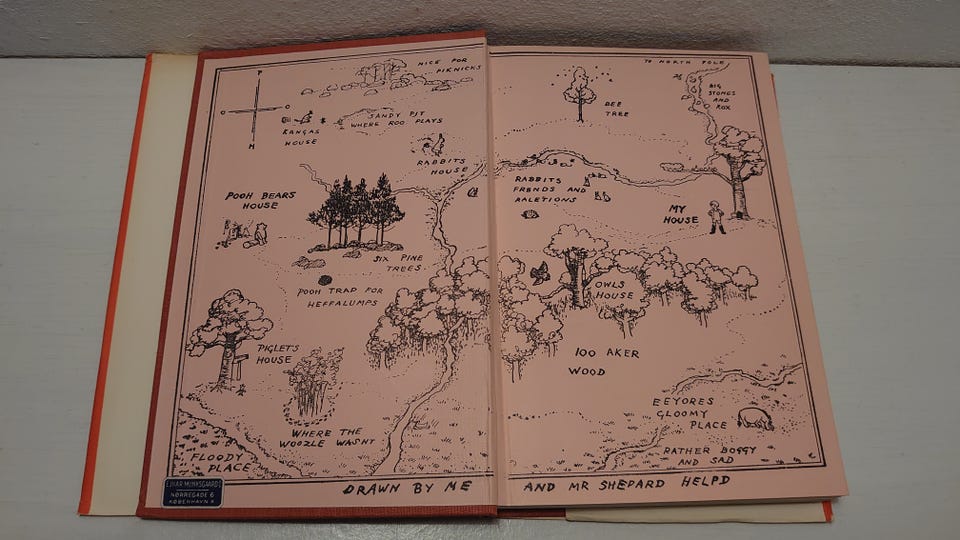 NICE FOR
PIKNICKS
P
O
O
H
KANGAS
HOUSE
SANDY PIT
WHERE ROO PLAYS
RABBITS
HOUSE
POOH BEARS
HOUSE
SIX PINE
TREES
POOH TRAP FOR
HEFFALUMPS
PIGLETS
HOUSE
WHERE THE
WOOZLE WASNT
FLOODY
PLACE
TO NORTH POLE
BIG
STONES
AND
ROX
BEE
TREE
RABBITS
FRENDS AND
RALETIONS
MY
HOUSE
OWLS
HOUSE
100 AKER
WOOD
EEYORES
GLOOMY
PLACE
RATHER BOGGY
AND SAD
DRAWN BY ME AND MR SHEPARD HELPD
EJNAR MUNKSGAARDS
NØRREGADE 6
KØBENHAVN K